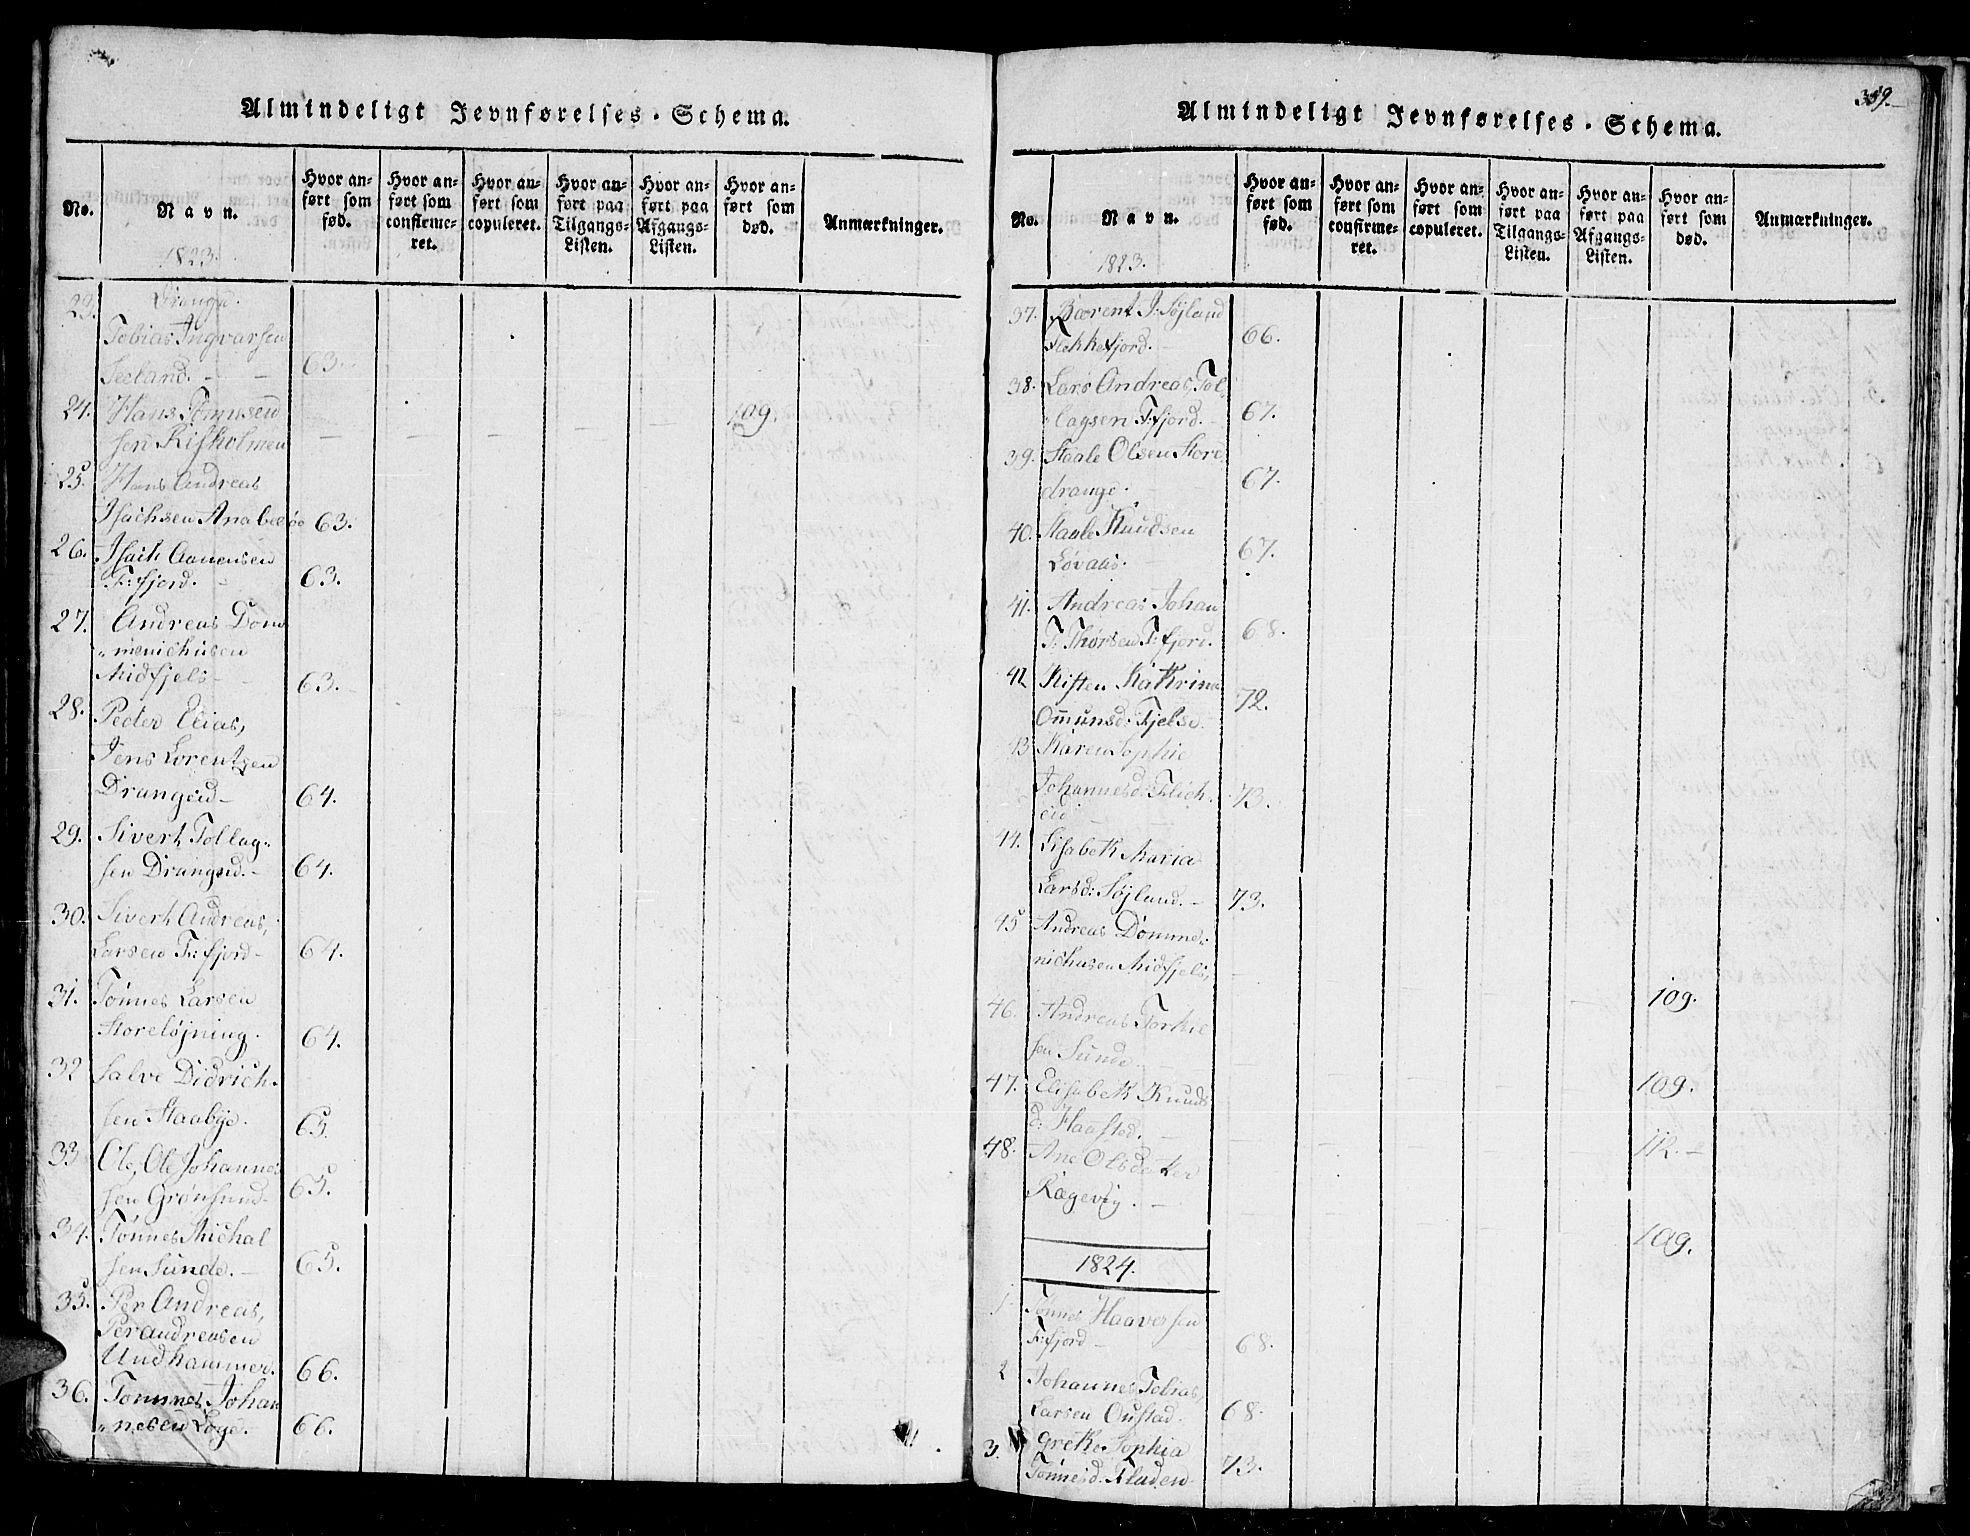 Almindeligt Jevnførelses-Schema.
No.
Navn.
Hvor an-
ført som
fød.
Hvor an-
ført som
confirme-
ret.
Hvor an-
ført som
copuleret.
Hvor an-
ført paa
Tilgangs-
Listen.
Hvor an-
ført paa
Afgangs-
Listen.
Hvor an-
ført som
død.
Anmærkninger.
1823.
23. Drange.
Tobias Ingvarsen
Seeland. 63.
24. Hans
sen Rifholmen 109.
25. Hans Andreas
Isachsen Anabeløe 63.
26. Isach Aanensen
F:fjord. 63.
27. Andreas Dom
"menichusen
Midfjels 63.
28. Peder Elias,
Jens Lorentzen
Drangeid 64.
29. Sivert Tollag-
sen Drangeid. 64.
30. Sivert Andreas,
Larsen F:fjord 64.
31. Tønnes Larsen
Storeløjning. 64.
32 Salve Didrich-
sen Staabye. 65.
33 Ole, Ole Johanne
sen Grønsund 65.
34. Tønnes Michal
sen Sunde. 65.
35. Per Andreas,
Perandreasen
Undhammer. 66.
36. Tønnnes Johan
"nesen Løge. 66.
Almindeligt Jevnførelses-Schema.
359.
No.
Navn.
Hvor an-
ført som
fød.
Hvor an-
ført som
confirme-
ret.
Hvor an-
ført som
copuleret.
Hvor an-
ført paa
Tilgangs-
Listen.
Hvor an-
ført paa
Afgangs-
Listen.
Hvor an-
ført som
død.
Anmærkninger.
1823.
37. Bærent I: Søjland
Flekkefjord. 66.
38. Lars Andreas, Tol-
"lagsen F:fjord. 67.
39. Staale Olsen Store
drange. 67.
40. Staale Knudsen
Løvaas. 67.
41. Andreas Johan
F: Thorsen F:fjord. 68.
42 Kisten Kathrina
Omunsd: Fjelse. 72.
43 Karen Sophie
Johannesd: Flich-
eid 73.
44. Lisabeth Maria
Larsd: Søjland. 73.
45 Andreas Domme-
nichusen Midfjels, 109.
46. Andreas Torkil
sen Sunde. 109.
47. Elisabeth Knuds
d: Haasted. 112.
48. Ane Olsdatter
Rægevig. 109.
1824.
1 Tønnes Haaversen
F:fjord 68.
2 Johannes Tobias,
Larsen Oustad. 68.
3. Grethe Sophia
Tønnesd. Fladen 73.